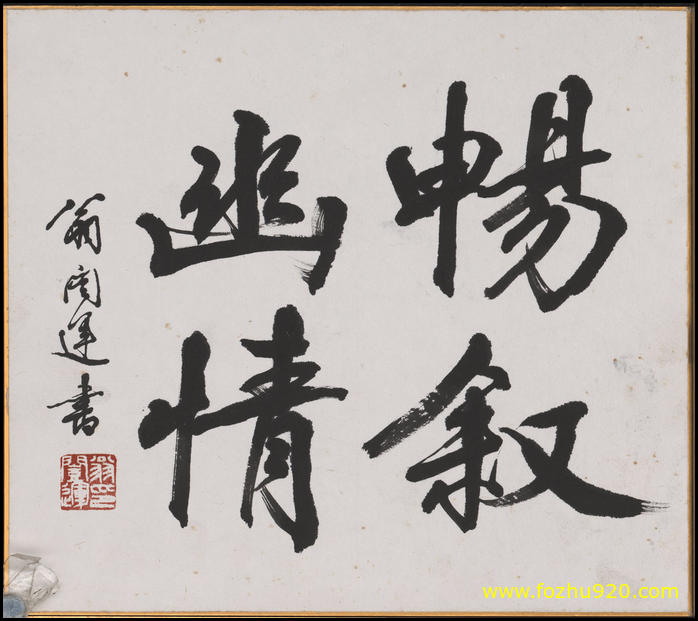 暢叙
幽情
翁闓運書
翁印
闓運
www.fozhu920.com